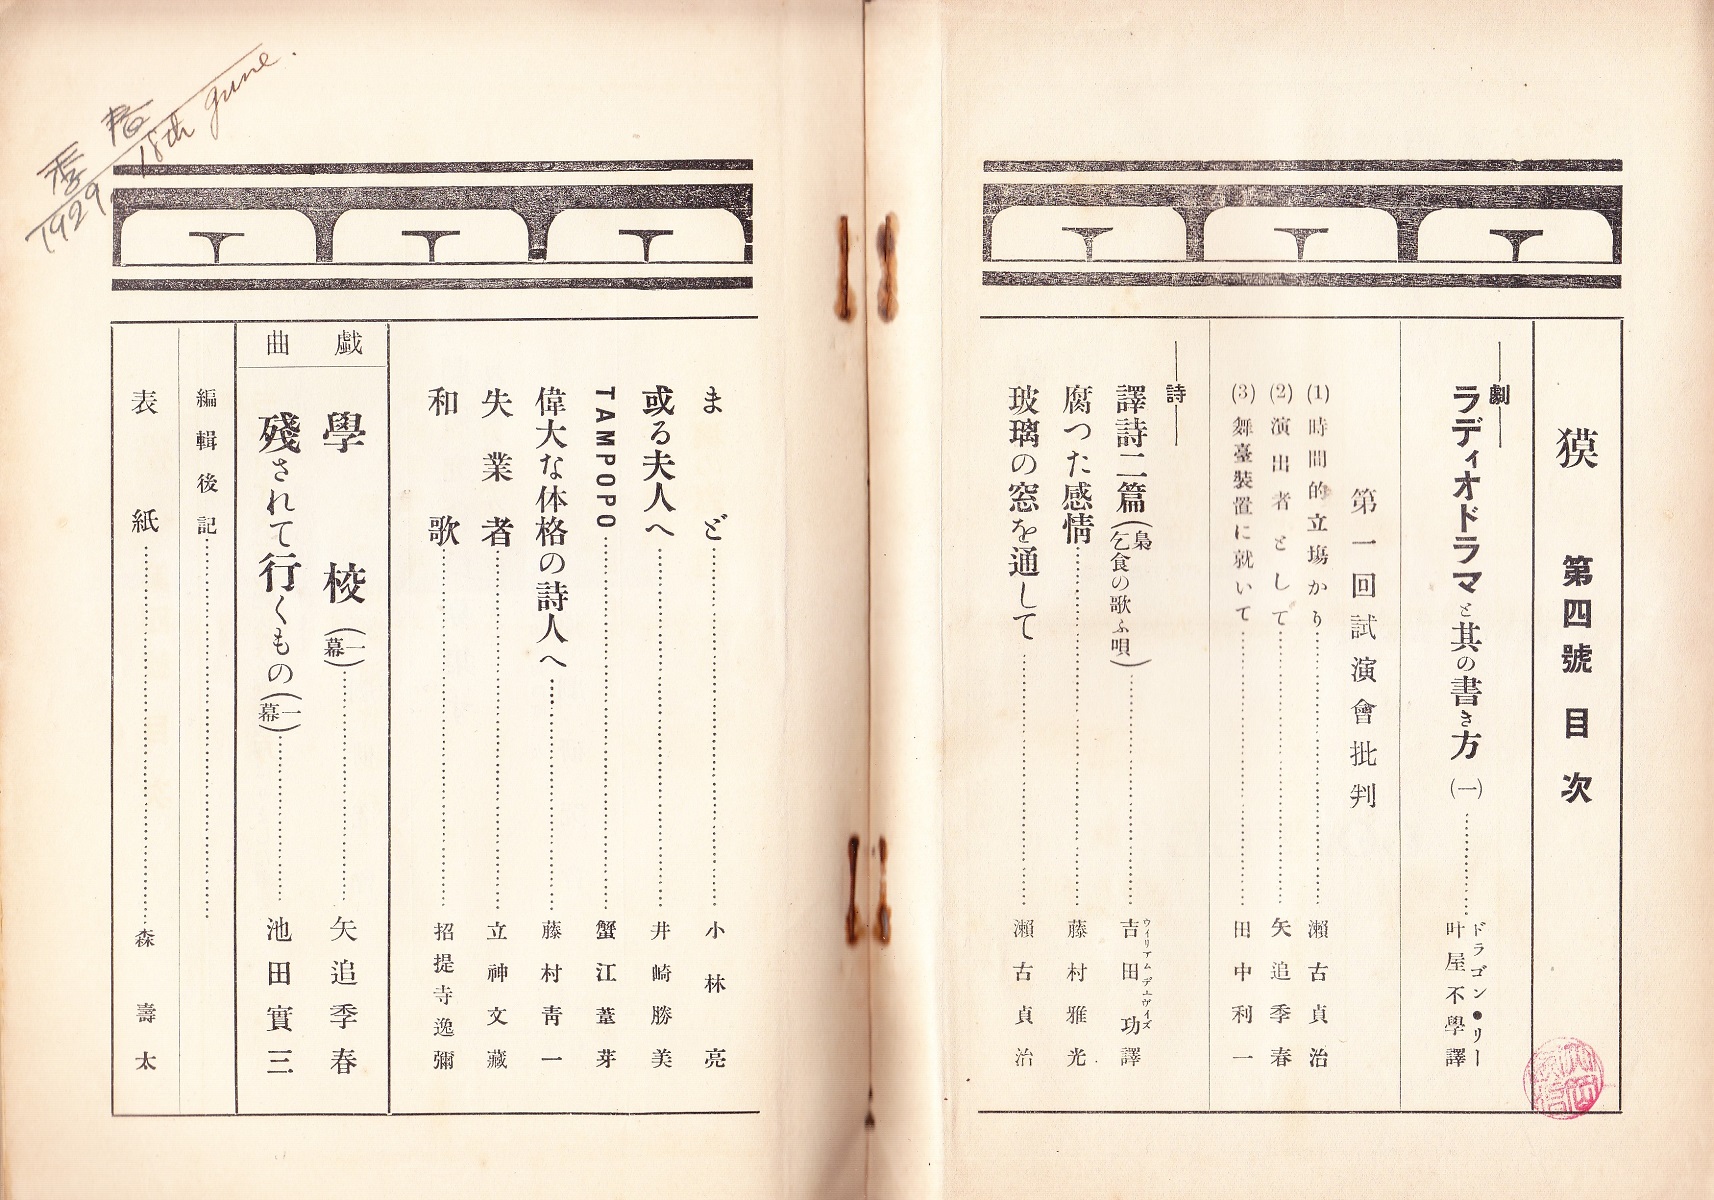 獏 第四號 目次
劇
ラディオドラマと其の書き方(一)
ドラゴン●リー
叶屋不學譯
第一回試演會批判
(1)時間的立場かり
瀨古貞治
(2)演出者として
矢追季春
(3)舞臺裝置に就いて
田中利一
詩
譯詩二篇(梟 乞食の歌ふ唄)
ウイリアム デエヴイズ
吉田 功譯
腐つた感情
藤村雅光
玻璃の窓を通して
瀨古貞治
まど
小林亮
或る夫人へ
井崎勝美
TAMPOPO
蟹江葦芽
偉大な体格の詩人へ
藤村靑一
失業者
立神文藏
和歌
招提寺逸彌
戯曲
學校(一幕)
矢追季春
殘されて行くもの(一幕)
池田實三
編輯後記
表紙
森壽太
1929. 18th June.